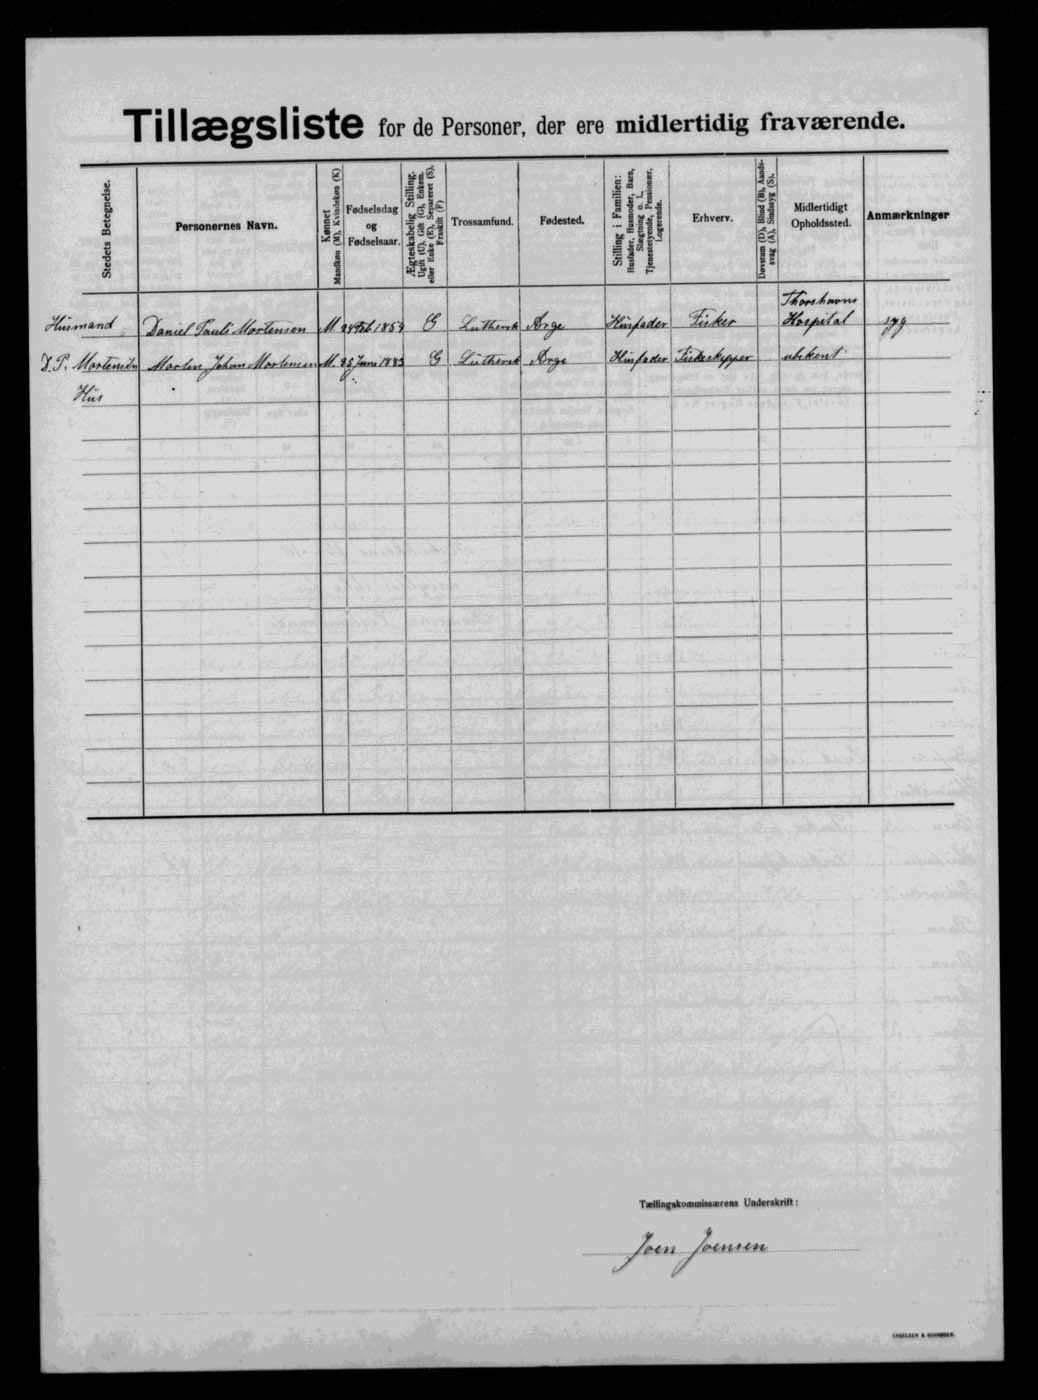 Tillægsliste for de Personer, der ere midlertidig fraværende.
Stedets Betegnelse.
Personernes Navn.
Kønnet
Mandkøn (M), Kvindekøn (K)
Fødselsdag
og
Fødselsaar.
Ægteskabelig Stilling.
Ugift (U), Gift (G), Enkem.
eller Enke (E), Separeret (S),
Fraskilt (F)
Trossamfund.
Fødested.
Stilling i Familien:
Husfader, Husmoder, Barn,
Slægtning o. l.,
Tjenestetyende, Pensionær,
Logerende.
Erhverv.
Døvstum (D), Blind (B), Aands-
svag (A), Sindssyg (S).
Midlertidigt
Opholdssted.
Anmærkninger
Husmand Daniel Pauli Mortensen M Feb. 1854 G Luthersk Arge Husfader Fisker Thorshavns Hospital syg
D. P. Mortensens Morten Johan Mortensen M. 25 Juni 1883 G Luthersk Arge Husfader Fiskeskipper ubekent
Hus
Tællingskommissærens Underskrift:
Joen Joensen